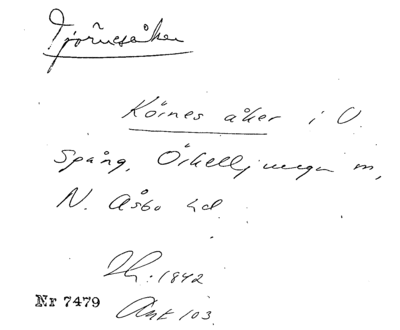 Tjörnesåker
Körnes åker i V.
Spång, Örkelljunga sn,
N. Åsbo hd.
1842
Nr 7479
Ant 103.